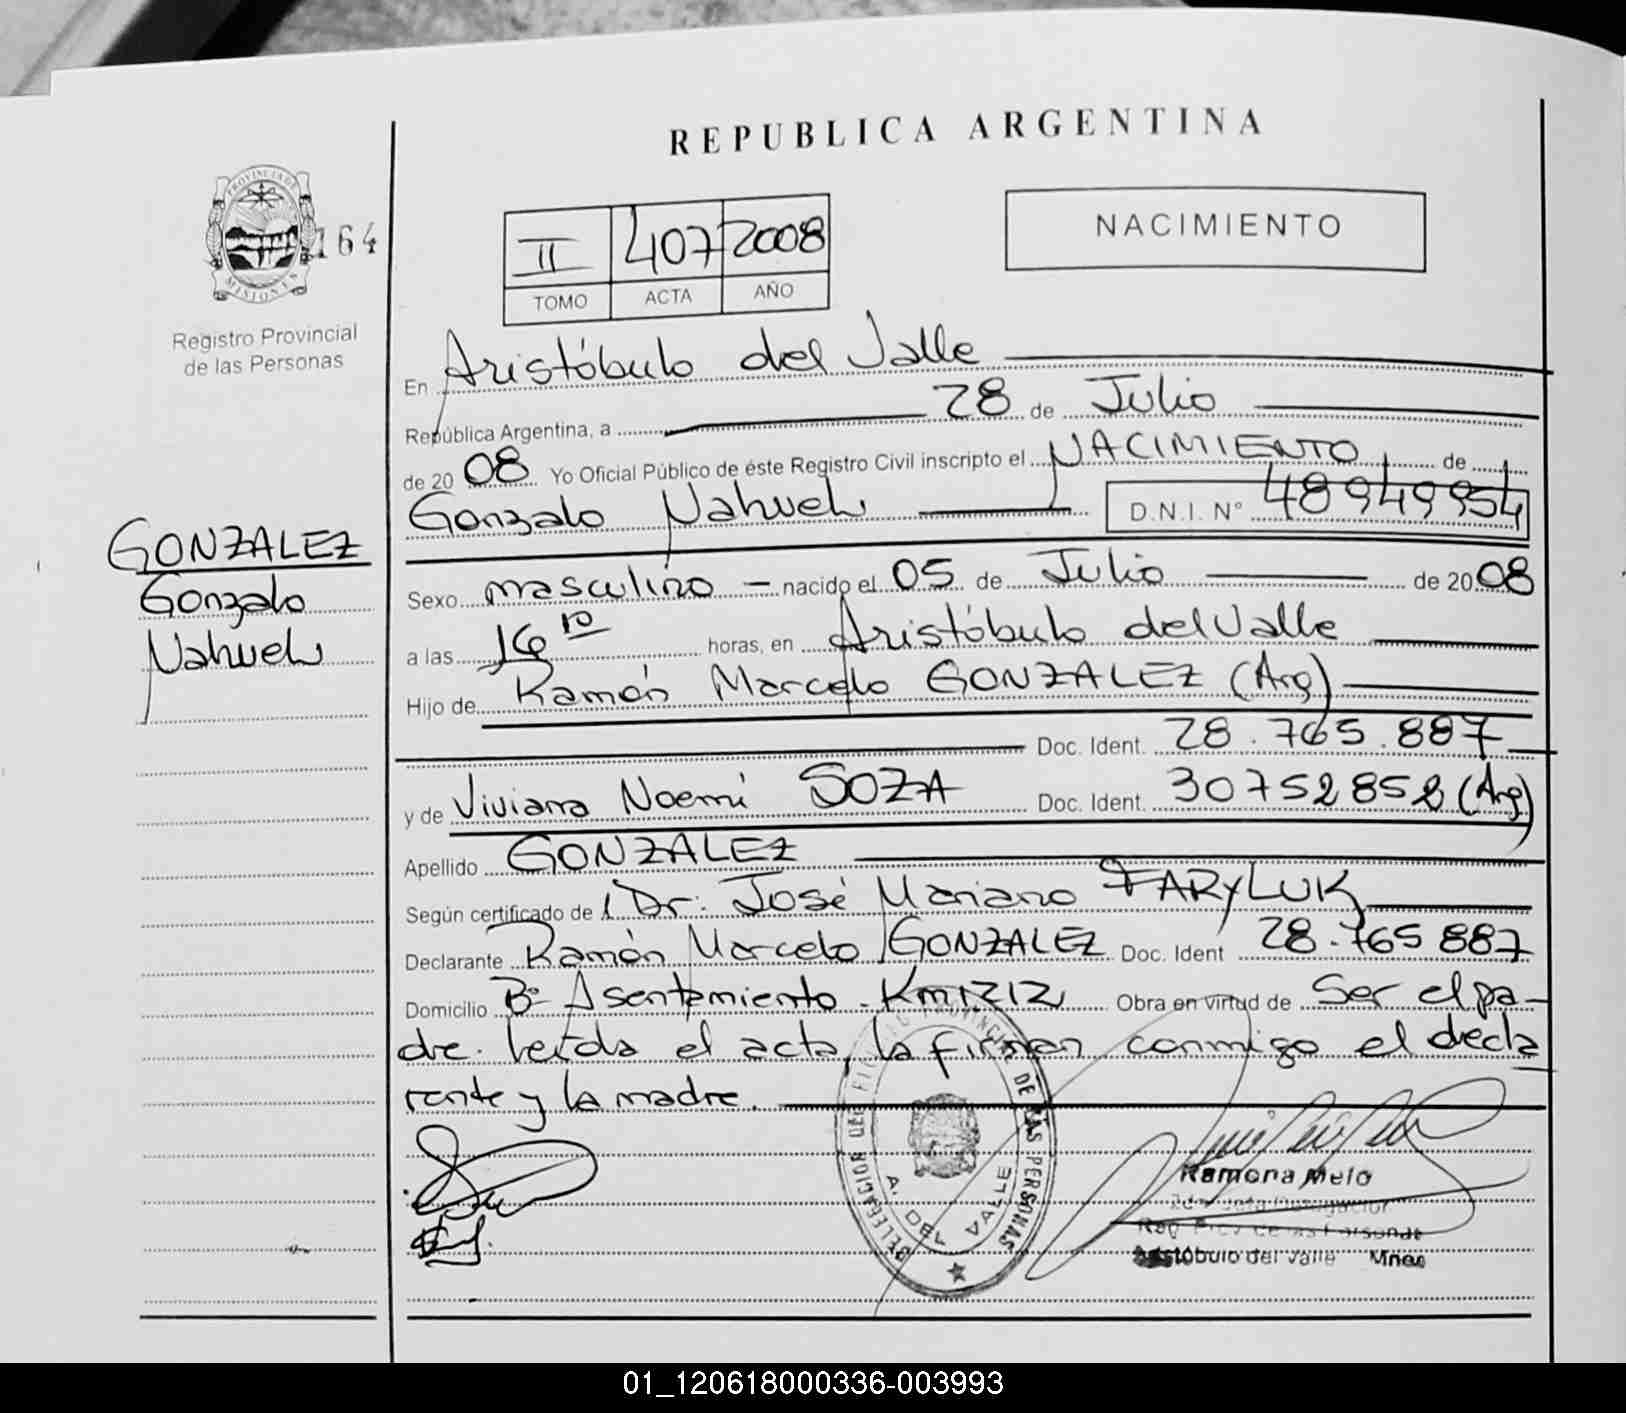 REPUBLICA ARGENTINA
PROVINCIA DE
MISIONES
164
Registro Provincial
de las Personas
II 407 2008
TOMO ACTA AÑO
NACIMIENTO
En Aristóbulo del Valle
República Argentina, a 28 de Julio
de 2008 Yo Oficial Público de éste Registro Civil inscripto el NACIMIENTO de
Gonzalo Nahuel D.N.I. N° 48949954
GONZALEZ
Gonzalo
Nahuel
Sexo masculino nacido el 05 de Julio de 2008
a las 16 10 horas, en Aristóbulo del Valle
Hijo de Ramón Marcelo GONZALEZ (Arg)
Doc. Ident. 28.765.887
y de Viviana Noemi SOZA Doc. Ident. 30752852 (Arg)
Apellido GONZALEZ
Según certificado de Dr. José Mariano FARYLUK
Declarante Ramón Marcelo GONZALEZ Doc. Ident 28.765887
Domicilio B° Asentamiento - Km 1212 Obra en virtud de Ser el pa-
dre. leída el acta, la firman conmigo el decla
rante y la madre.
DE LAS PERSONAS
A. DEL VALLE
Ramona Melo
Reg Prov de las Personas
Aristóbulo del Valle Mnes
01_120618000336-003993